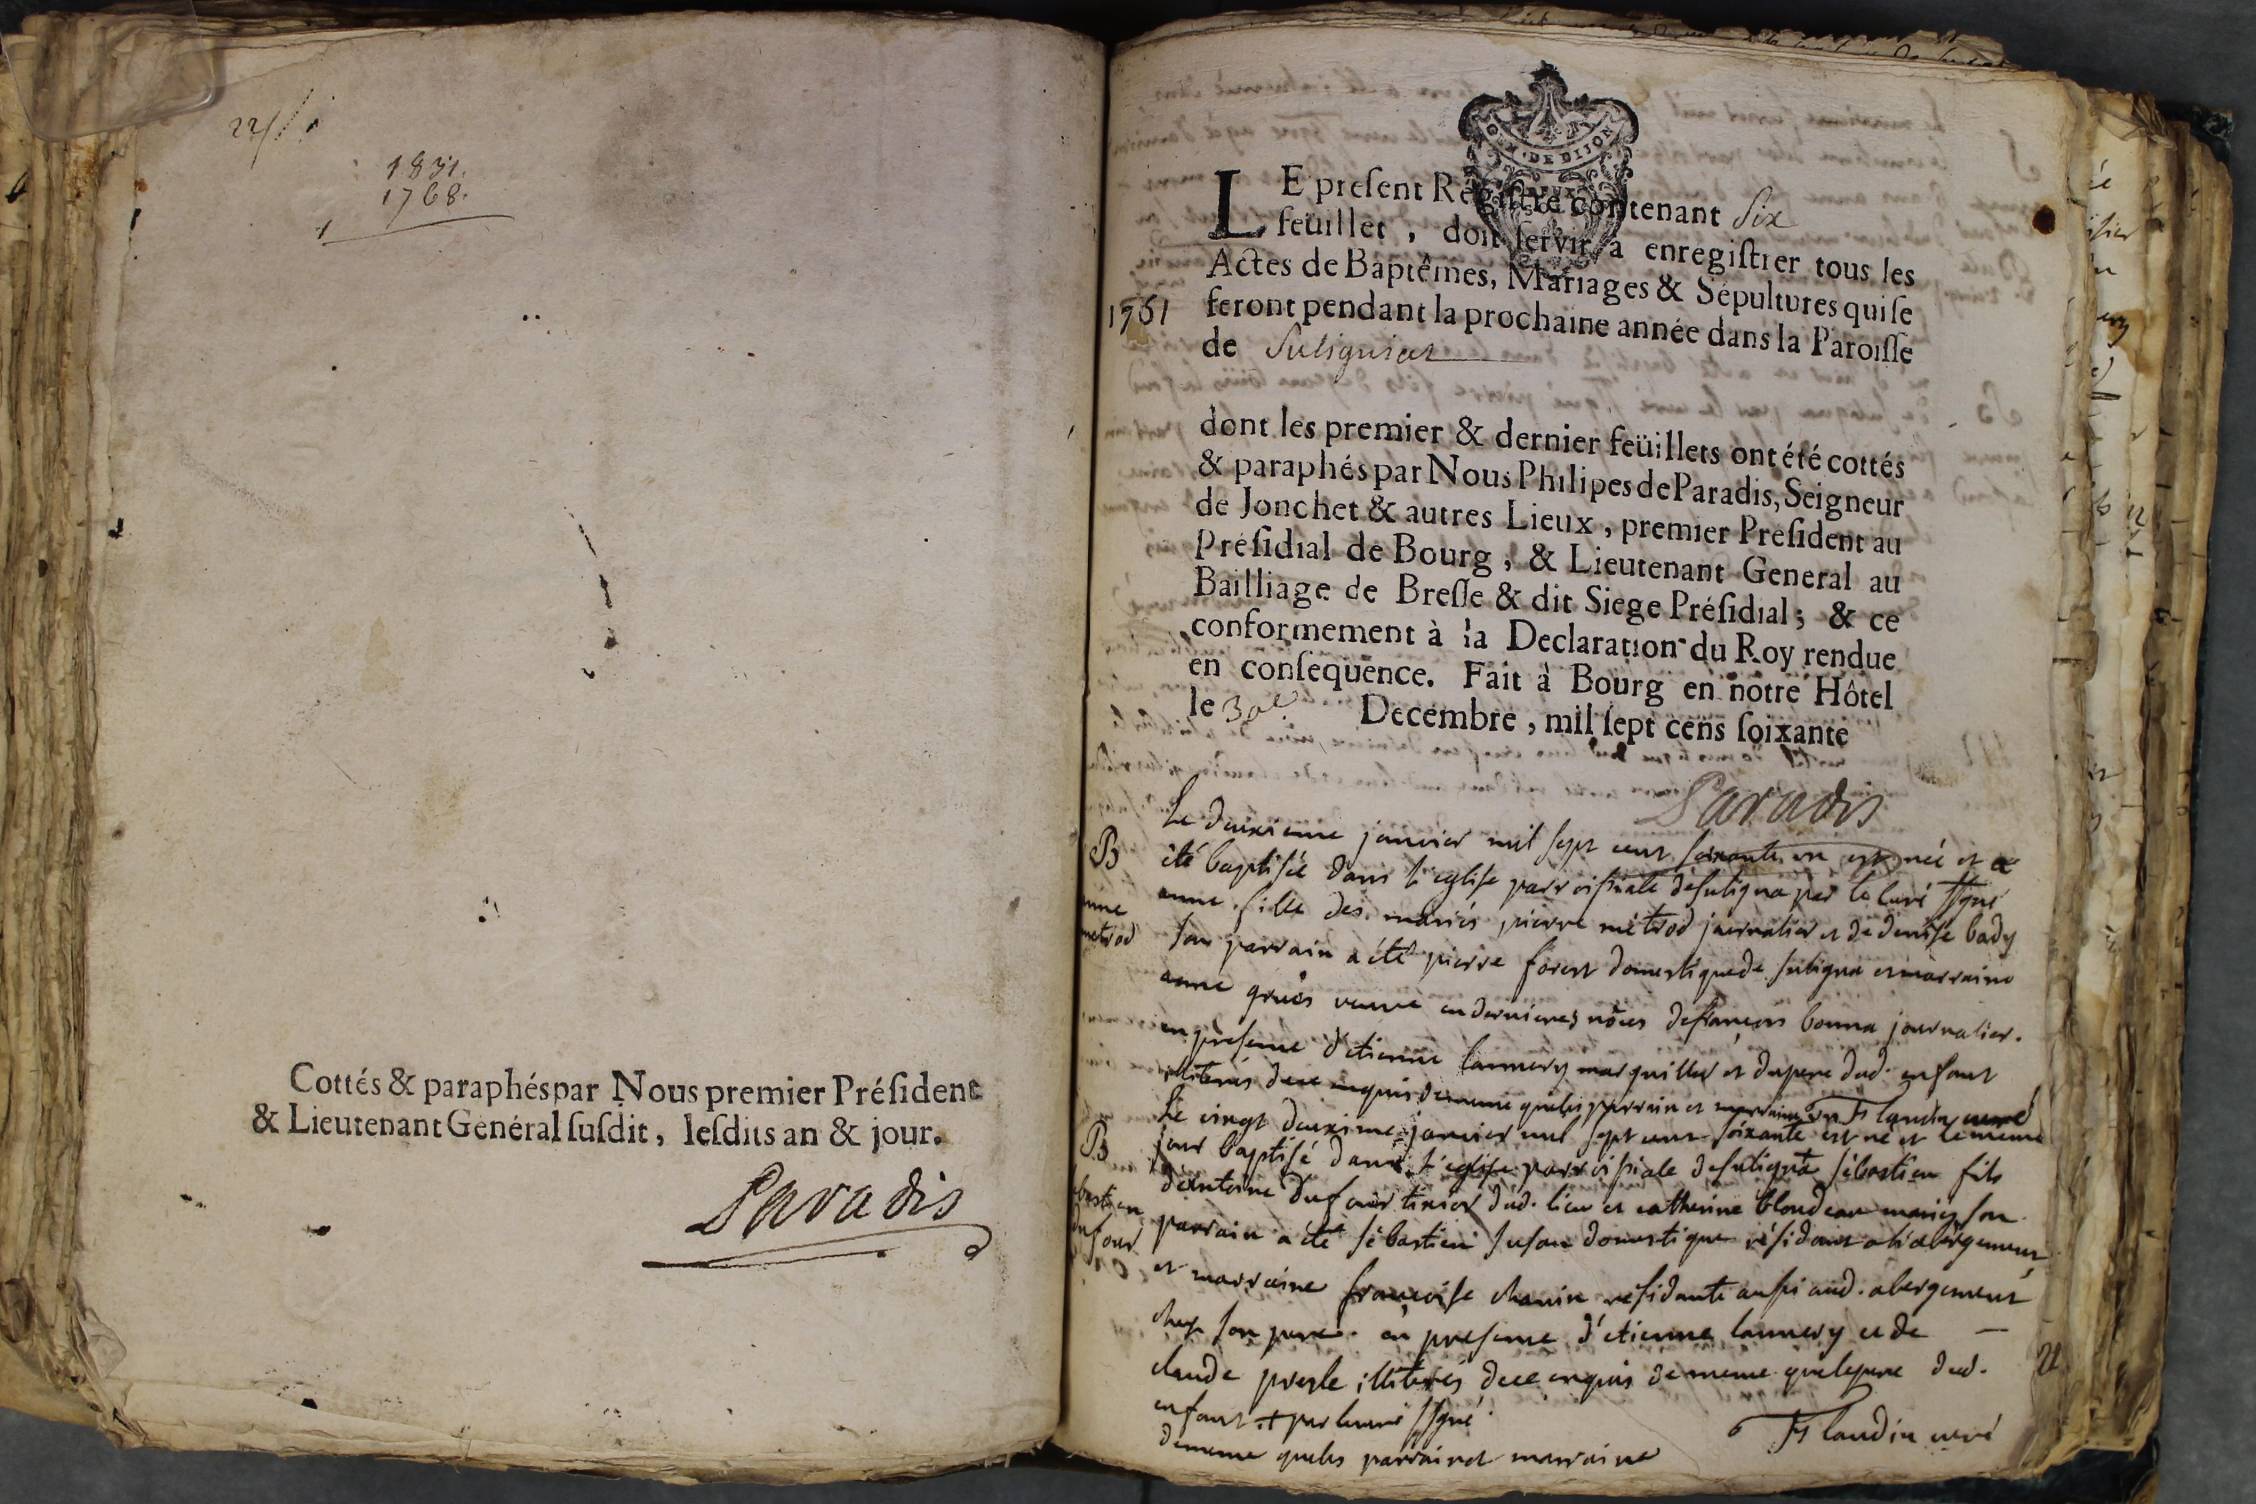 22
1831.
1768.
1
Cottés & paraphés par Nous premier Préſident
& Lieutenant Genéral ſuſdit, leſdits an & jour.
Paradis
GEN. DE DIJON
LE preſent Regiſtre contenant Six
feüillet, doit ſervir à enregiſtrer tous les
Actes de Baptêmes, Mariages & Sépultures qui ſe
1761
feront pendant la prochaine année dans la Paroiſſe
de Sulignat
dont les premier & dernier feüillets ont été cottés
& paraphés par Nous Philipes de Paradis, Seigneur
de Jonchet & autres Lieux, premier Preſident au
Préſidial de Bourg, & Lieutenant General au
Bailliage de Breſſe & dit Siege Préſidial; & ce
conformement à la Declaration du Roy rendue
en conſequence. Fait à Bourg en notre Hôtel
le 30e Decembre, mil ſept cens ſoixante
Paradis
B
anne
metrod
Le deuxieme janvier mil sept cent soixante un est née et a
été baptisée dans l'eglise parroissiale de suligna par le curé ssgné
anne fille des mariés pierre métrod journalier et de denise bady
son parrain a été pierre forest domestique de suligna et marraine
anne veuve en dernieres nôces de françois bonna journalier.
en presence d'etienne lannery marguiller et du pere dud. enfant
illiterés de ce enquis de meme que les parrain et marraine Flandin curé
B
sebastien
dufour
Le vingt deuxime janvier mil sept cent soixante est né et le meme
jour baptisé dans l'eglise parroissiale de suligna sébastien fils
d'antoine dufour tixier dud. lieu et catherine blondeau mariés son
parrain a été sébastien domestique résidant a l'abergement
et marraine françoise chanin residante aussi aud. abergement
chez son pere. en presence d'etienne lannery et de —
claude presle illiterés de ce enquis de meme que le pere dud.
enfant + par le curé ssgné
Flandin curé
de meme que les parrain et marraine